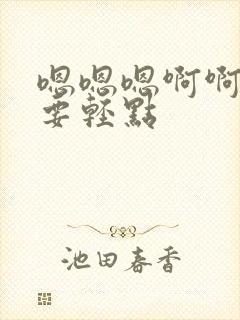 嗯嗯嗯啊啊
要輕點
池田春香